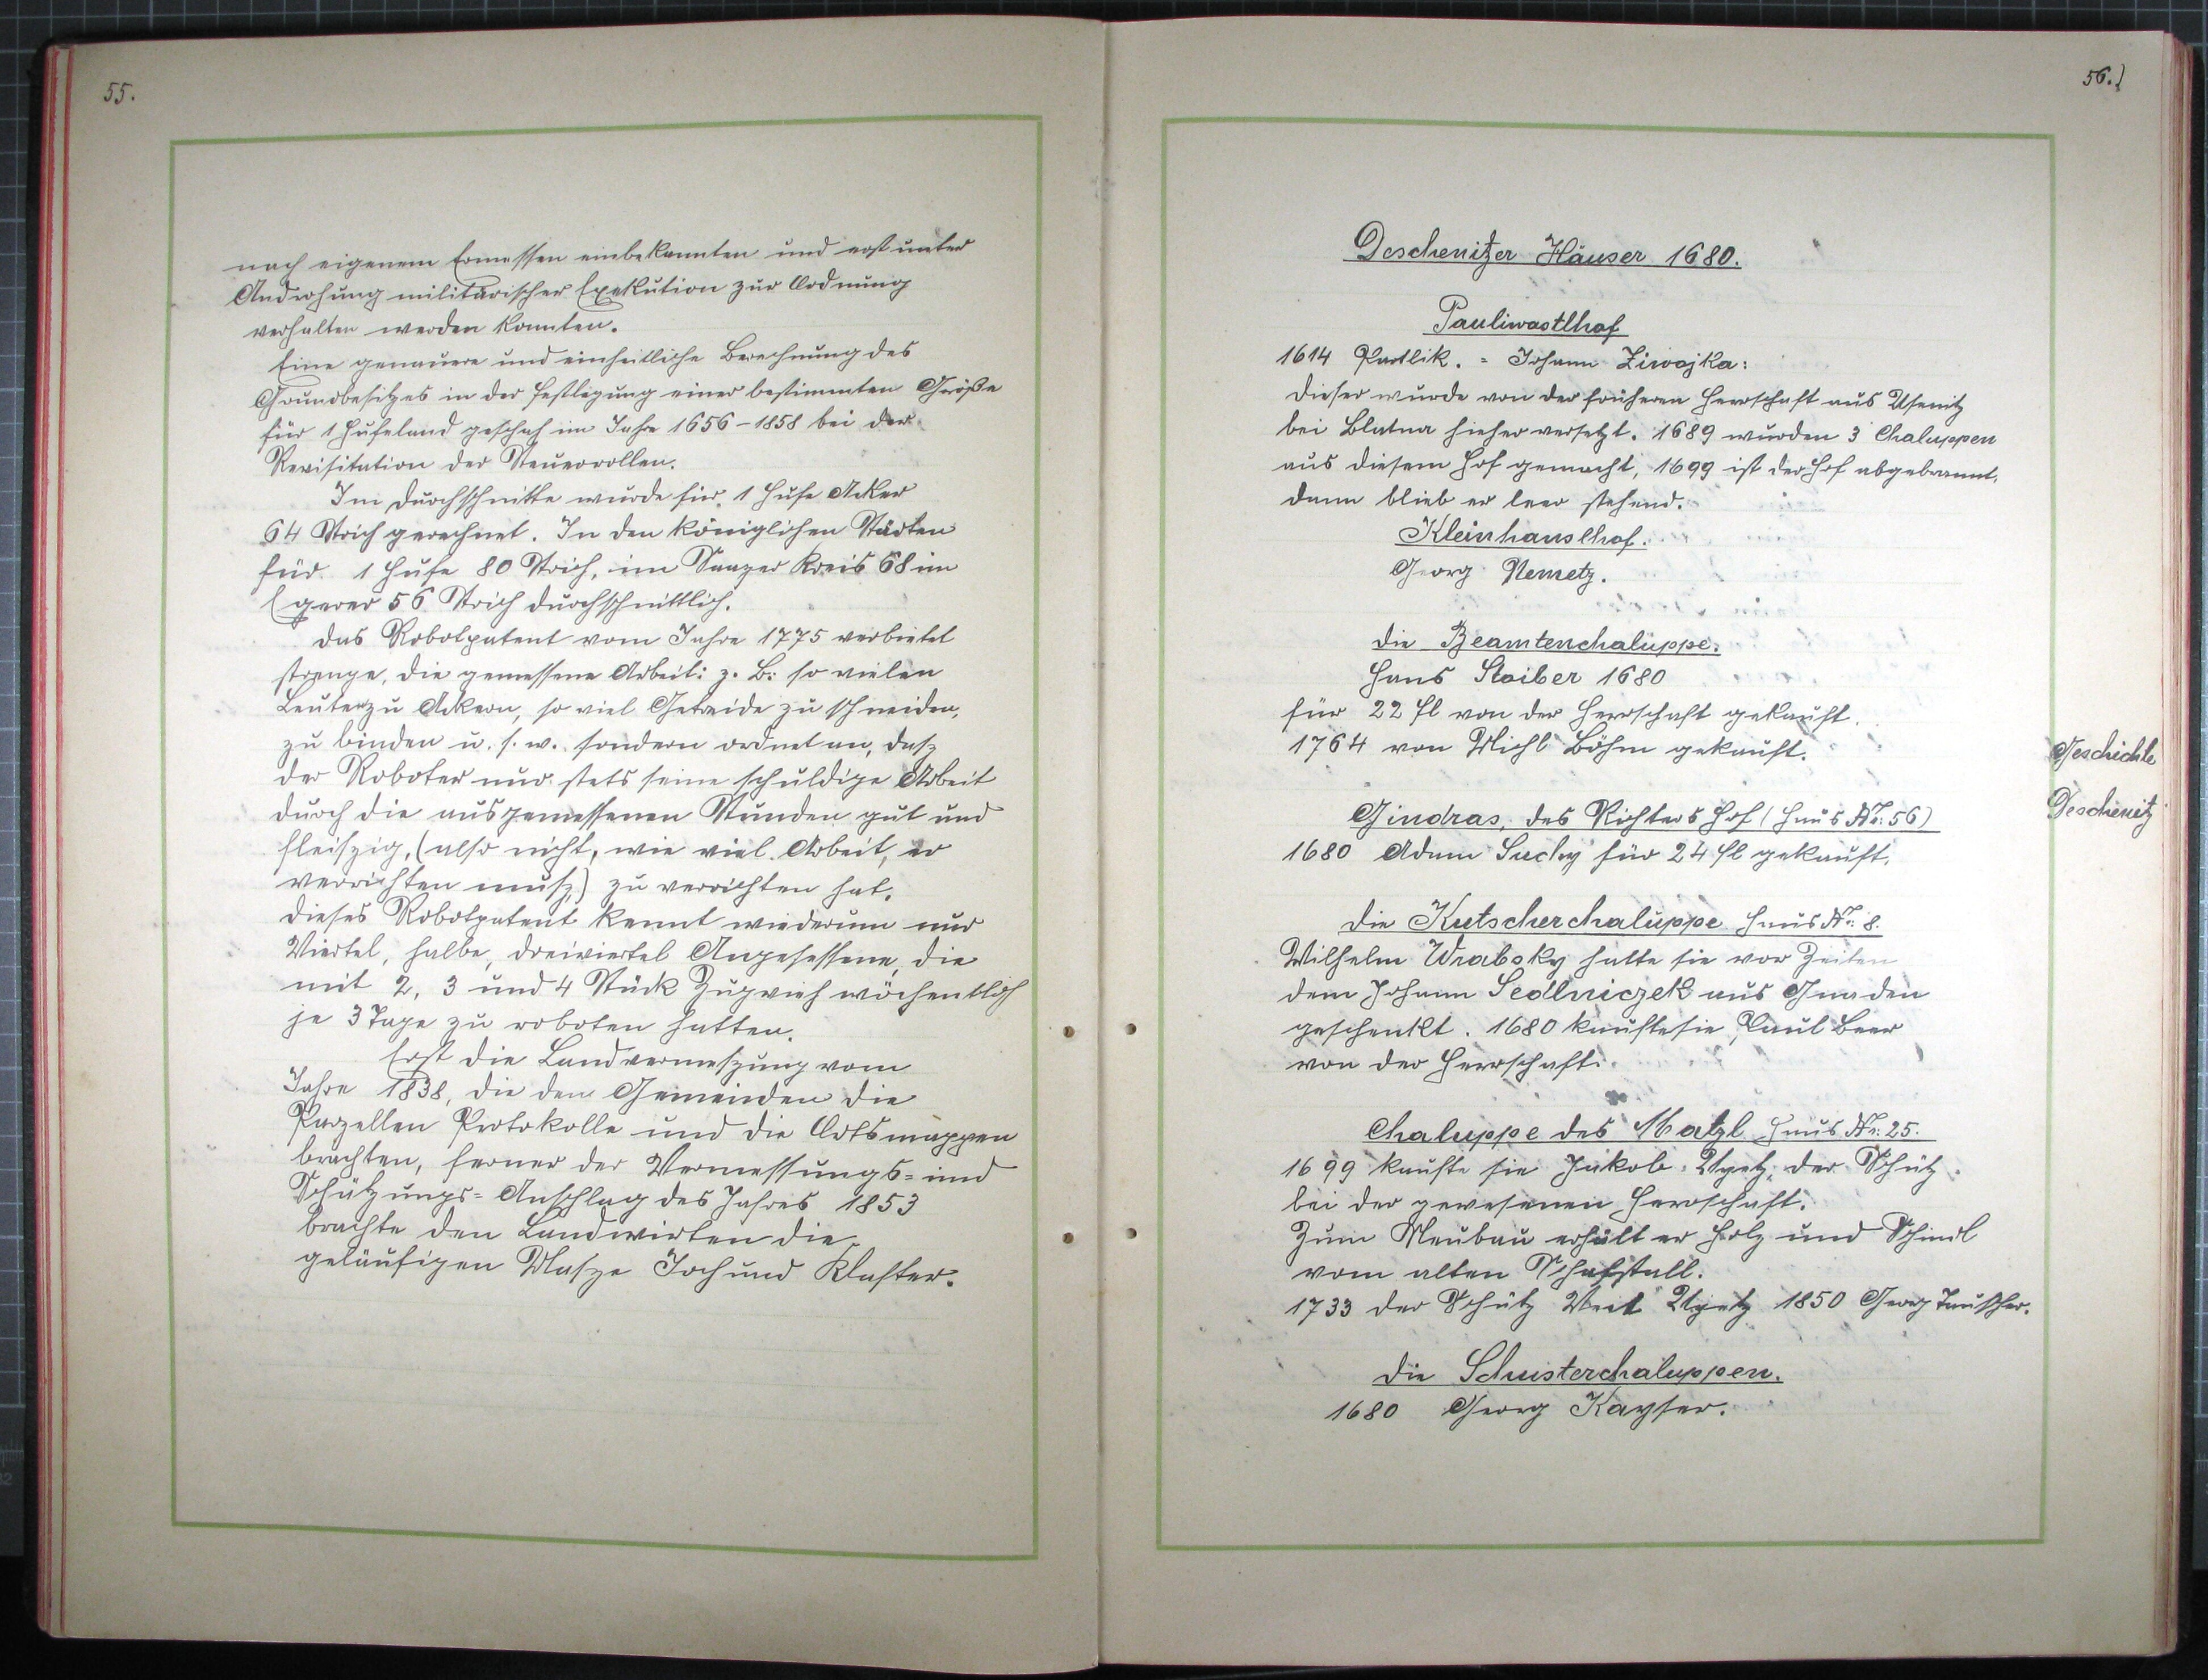 55.
nach eigenem Ermessen einbekannten und erst unter
Androhung militärischer Exekution zur Ordnung
verhalten werden konnten.
Eine genauere und einheitliche Berechnung des
Grundbesitzes in der Festlegung einer bestimmten Größe
für 1 Hufeland geschah im Jahre 1656-1858 bei der
Revisitation der Steuerrollen.
Im Durchschnitte wurde für 1 Hufe Acker
64 Strich gerechnet. In den königlichen Städten
für 1 Hufe 80 Strich, im Saazer Kreis 68 im
Egerer 56 Strich durchschnittlich.
Das Robotpatent vom Jahre 1775 verbietet
strenge, die gemessene Arbeit: z. B: so vielen
Leuten zu Ackern, so viel Getreide zu schneiden,
zu binden u. s. w. sondern ordnet an, dasz
der Roboter nur stets seine schuldige Arbeit
durch die ausgemessenen Stunden gut und
fleiszig, (also nicht, wie viel Arbeit, er
verrichten musz,) zu verrichten hat.
Dieses Robotpatent kennt wiederum nur
Viertel, halbe, dreiviertel Angesessene, die
mit 2, 3 und 4 Stück Zugvieh wöchentlich
je 3 Tage zu roboten hatten.
Erst die Landvermeszung vom
Jahre 1838, die den Gemeinden die
Parzellen Protokolle und die Ortsmappen
brachten, ferner der Vermessungs= und
Schätzungs= Anschlag des Jahres 1853
brachte den Landwirten die
geläufigen Masze Joch und Klafter.
56.)
Deschenitzer Häuser 1680.
Pauliwastlhof
1614 Partlik. = Johann Ziwojka:
Dieser wurde von der früheren Herrschaft aus Usenitz
bei Blatna hieher versetzt. 1689 wurden 3 Chaluppen
aus diesem Hof gemacht, 1699 ist der Hof abgebrannt,
dann blieb er leer stehend.
Kleinhanslhof.
Georg Nemetz.
Die Beamtenchaluppe.
Hans Stoiber 1680
für 22 fl von der Herrschaft gekauft.
1764 von Michl Böhm gekauft.
Geschichte
Deschenitz
Gindras, des Richters Hof (Haus Nr: 56)
1680 Adam Suchy für 24 fl gekauft.
Die Kutscherchaluppe Haus Nr: 8.
Wilhelm Wrabsky hatte sie vor Zeiten
dem Johann Sedlniczek aus Gnaden
geschenkt. 1680 kaufte sie Paul Beer
von der Herrschaft.
Chaluppe des Matzl Haus Nr: 25.
1699 kaufte sie Jakob, der Schütz
bei der gewesenen Herrschaft.
Zum Neubau erhält er Holz und Schindl
vom alten Schafstall.
1733 der Schütz Veit 1850 Georg Tauscher.
Die Schusterchaluppen.
1680 Georg Kayser.